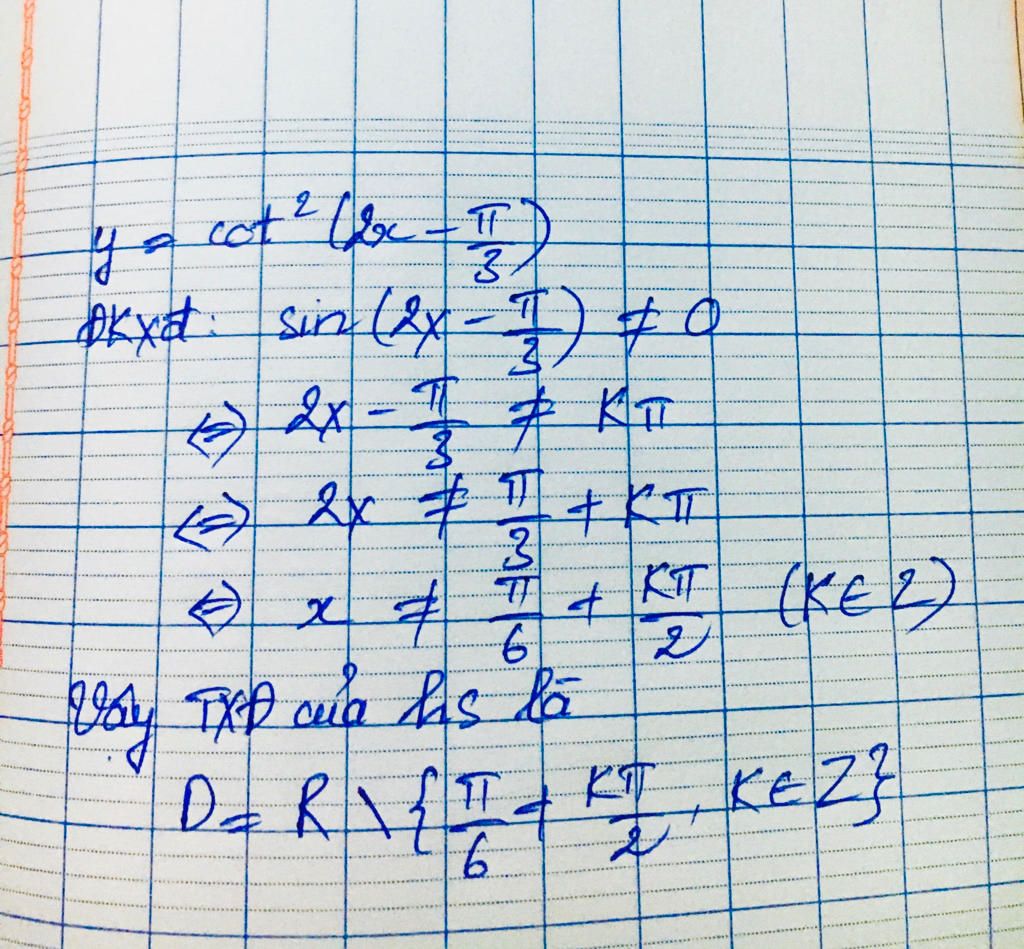 y = cot² (2x - π/3)
ĐKXĐ: sin (2x - π/3) ≠ 0
⇔ 2x - π/3 ≠ Kπ
⇔ 2x ≠ π/3 + Kπ
⇔ x ≠ π/6 + Kπ/2 (K ∈ Z)
Vậy TXĐ của hs là
D = R \ {π/6 + Kπ/2, K ∈ Z}